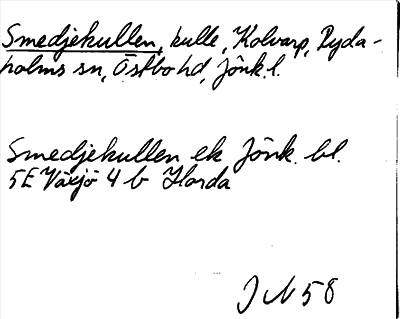 Smedjekullen, kulle, Kolvarp, Ryda-
holms sn, Östbo hd, Jönk. l.
Smedjekullen ek Jönk. bl.
5E Växjö 4 b Horda
J N 58